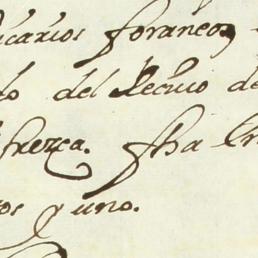 icarios foraneos
do del Recivo de
frezca. fha en
os y uno.